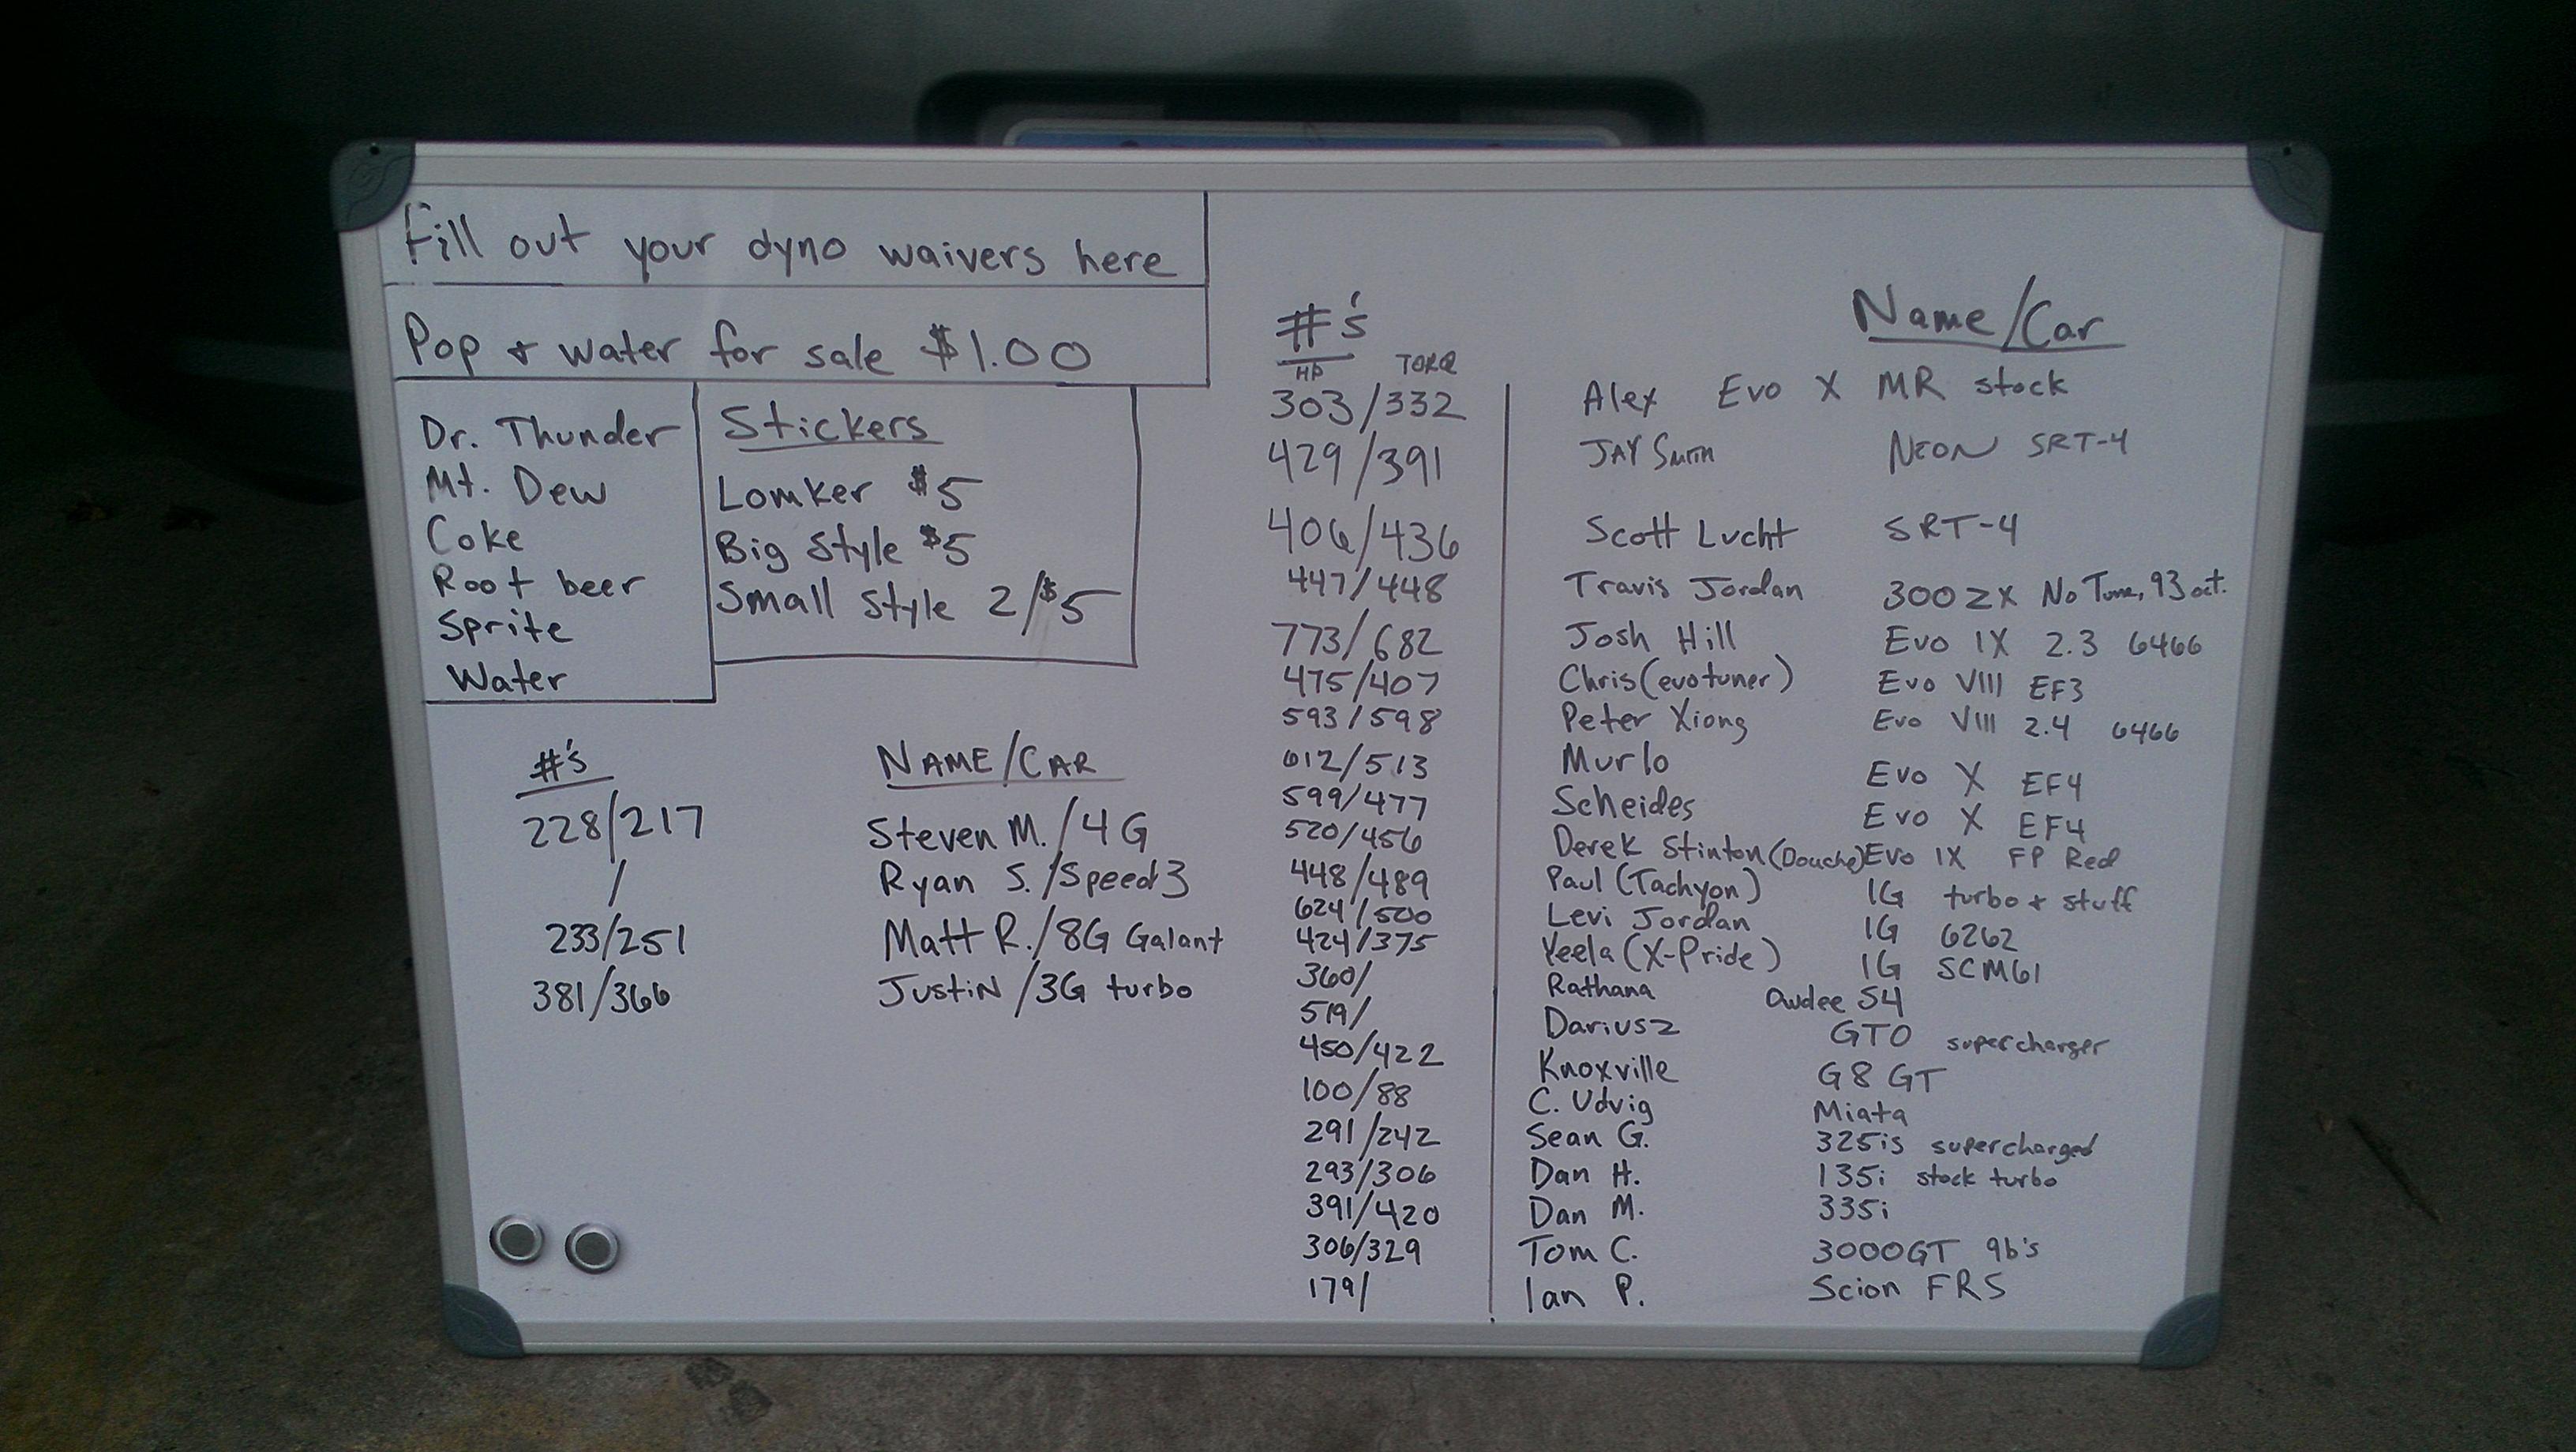 Fill out your dyno waivers here
Pop & water for sale $1.00
Dr. Thunder
Mt. Dew
Coke
Root beer
Sprite
Water
Stickers
Lomker $5
Big Style $5
Small Style 2/$5
#'s NAME/CAR
228/217 Steven M./4G
/ Ryan S./Speed3
233/251 Matt R./8G Galant
381/366 Justin/3G turbo
#'s Name/Car
HP TORQ
303/332 Alex Evo X MR stock
429/391 JAY SMITH NEON SRT-4
406/436 Scott Lucht SRT-4
447/448 Travis Jordan 300ZX No Tune, 93 oct.
773/682 Josh Hill Evo IX 2.3 6466
475/407 Chris (evotuner) Evo VIII EF3
593/598 Peter Xiong Evo VIII 2.4 6466
612/513 Murlo Evo X EF4
599/477 Scheides Evo X EF4
520/456 Derek Stinton (Douche) Evo IX FP Red
448/489 Paul (Tachyon) 1G turbo & stuff
624/500 Levi Jordan 1G 6262
424/375 Yeela (X-Pride) 1G SCM61
360/ Rathana Owdee S4
519/ Dariusz GTO supercharger
450/422 Knoxville G8 GT
100/88 C. Udvig Miata
291/242 Sean G. 325is supercharged
293/306 Dan H. 135i stock turbo
391/420 Dan M. 335i
306/329 Tom C. 3000GT 9b's
179/ Ian P. Scion FRS